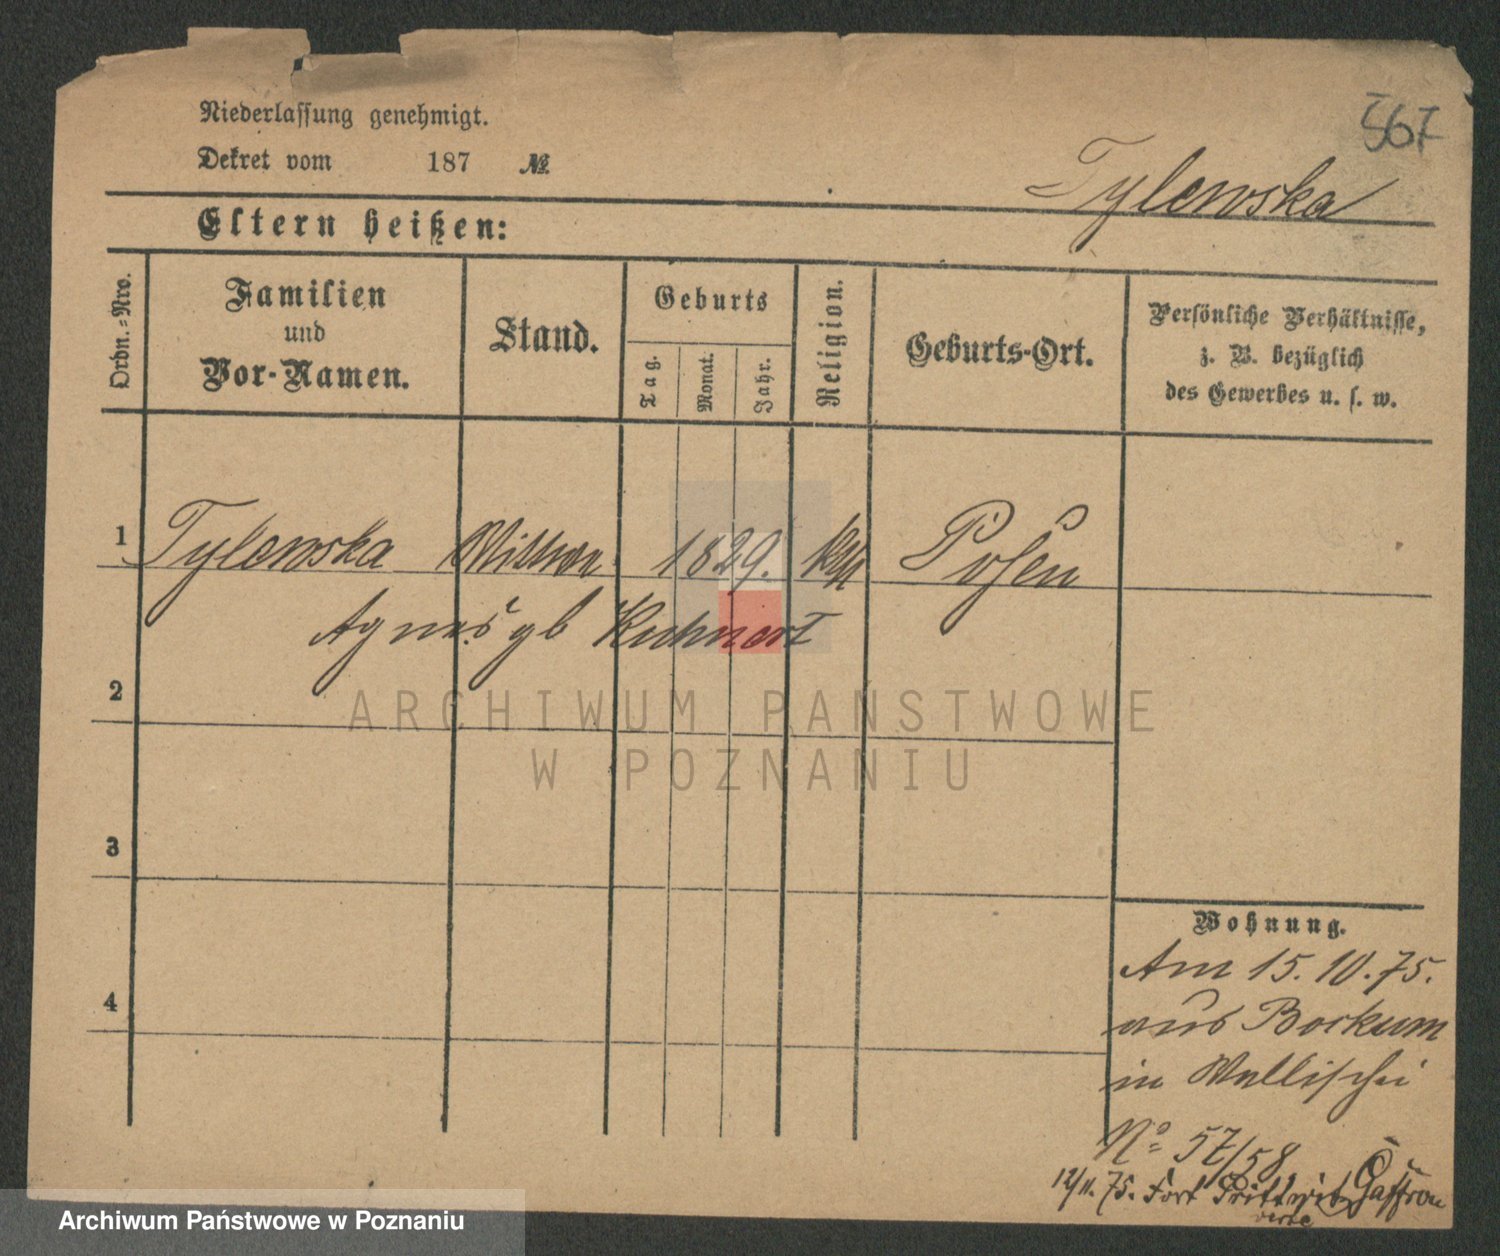 567
Niederlassung genehmigt.
Dekret vom 187 №
Tylewska
Eltern heißen:
Ordn.-Nro.
Familien
und
Vor-Namen.
Stand.
Geburts
Tag.
Monat.
Jahr.
Religion.
Geburts-Ort.
Persönliche Verhältnisse,
z. B. bezüglich
des Gewerbes u. s. w.
1 Tylewska Wittwe 1829. kth Posen
Agnes gb Kuhnert
2
ARCHIWUM PAŃSTWOWE
W POZNANIU
3
Wohnung.
Am 15.10.75.
aus Bockum
in Wallischei
4
No 57/58
12/11. 75. Fort Prittwitz Gaffron
Archiwum Państwowe w Poznaniu